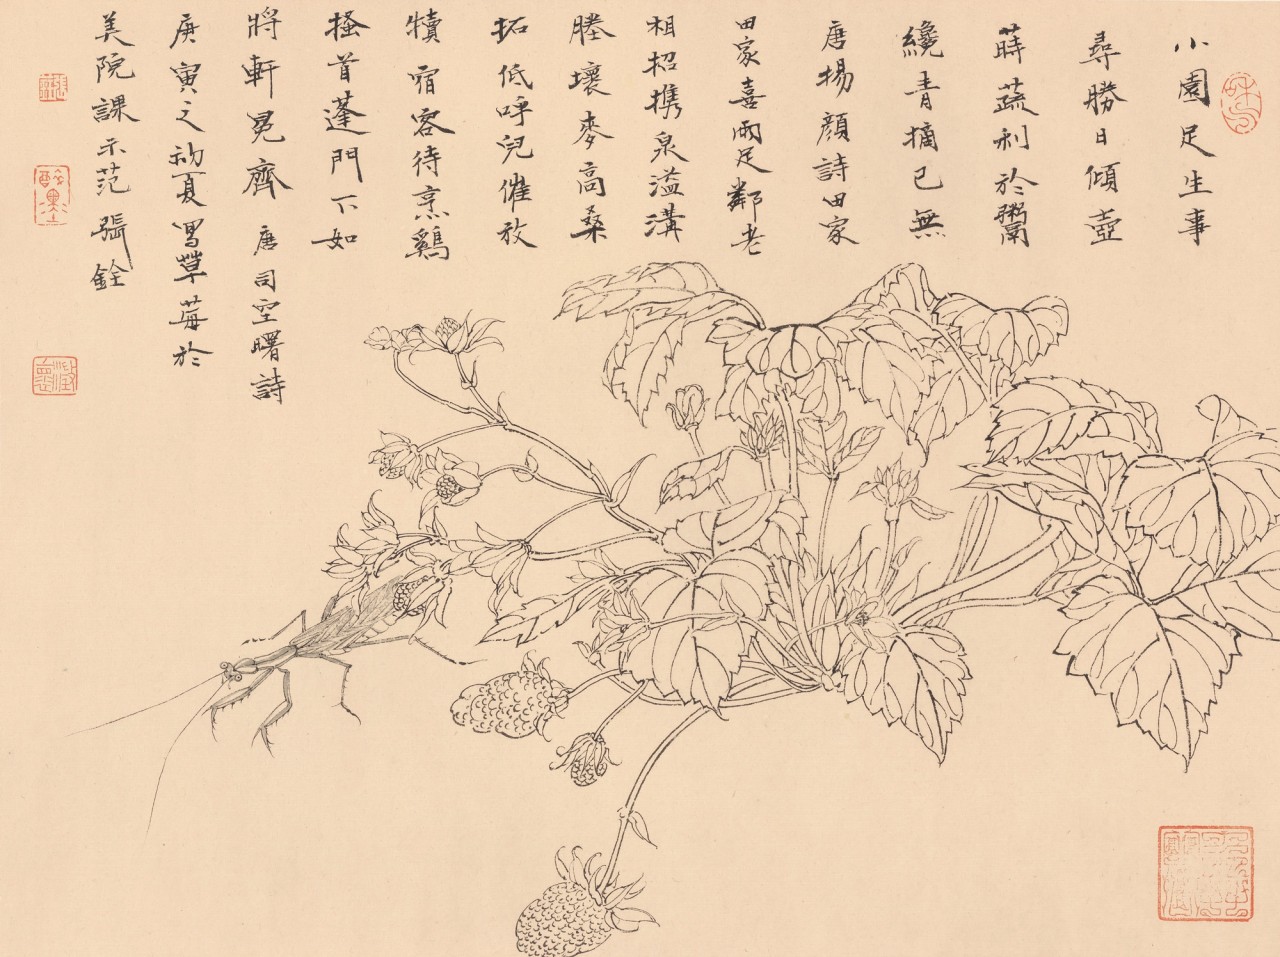 小園足生事
尋勝日傾壺
蒔蔬利於鬻
纔青摘已無
唐揚顏詩田家
田家喜雨足鄰老
相招攜泉溢溝
塍壞麥高桑
拓低呼兒催放
犢宿客待烹鷄
搔首蓬門下如
將軒冕齊 唐司空曙詩
庚寅之初夏寫草莓於
美院課示范 張銓